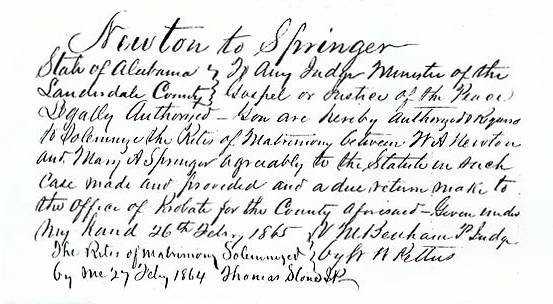 Newton to Springer
State of Alabama } To Any Judge Minister of the
Lauderdale County } Gospel or Justice of the Peace
Legally Authorized – You are hereby Authorized &
to Solemnize the Rites of Matrimony between W A Newton
and Mary A Springer agreeably to the Statute in such
Case made and provided and a due return make to
the Office of Probate for the County aforisaid – Given under
My hand 26th Feby 1865 W M Benham P Judge
The Rites of Matrimony Solemnized } by W R Pettus
by me 27 Feby 1864 Thomas J.P.